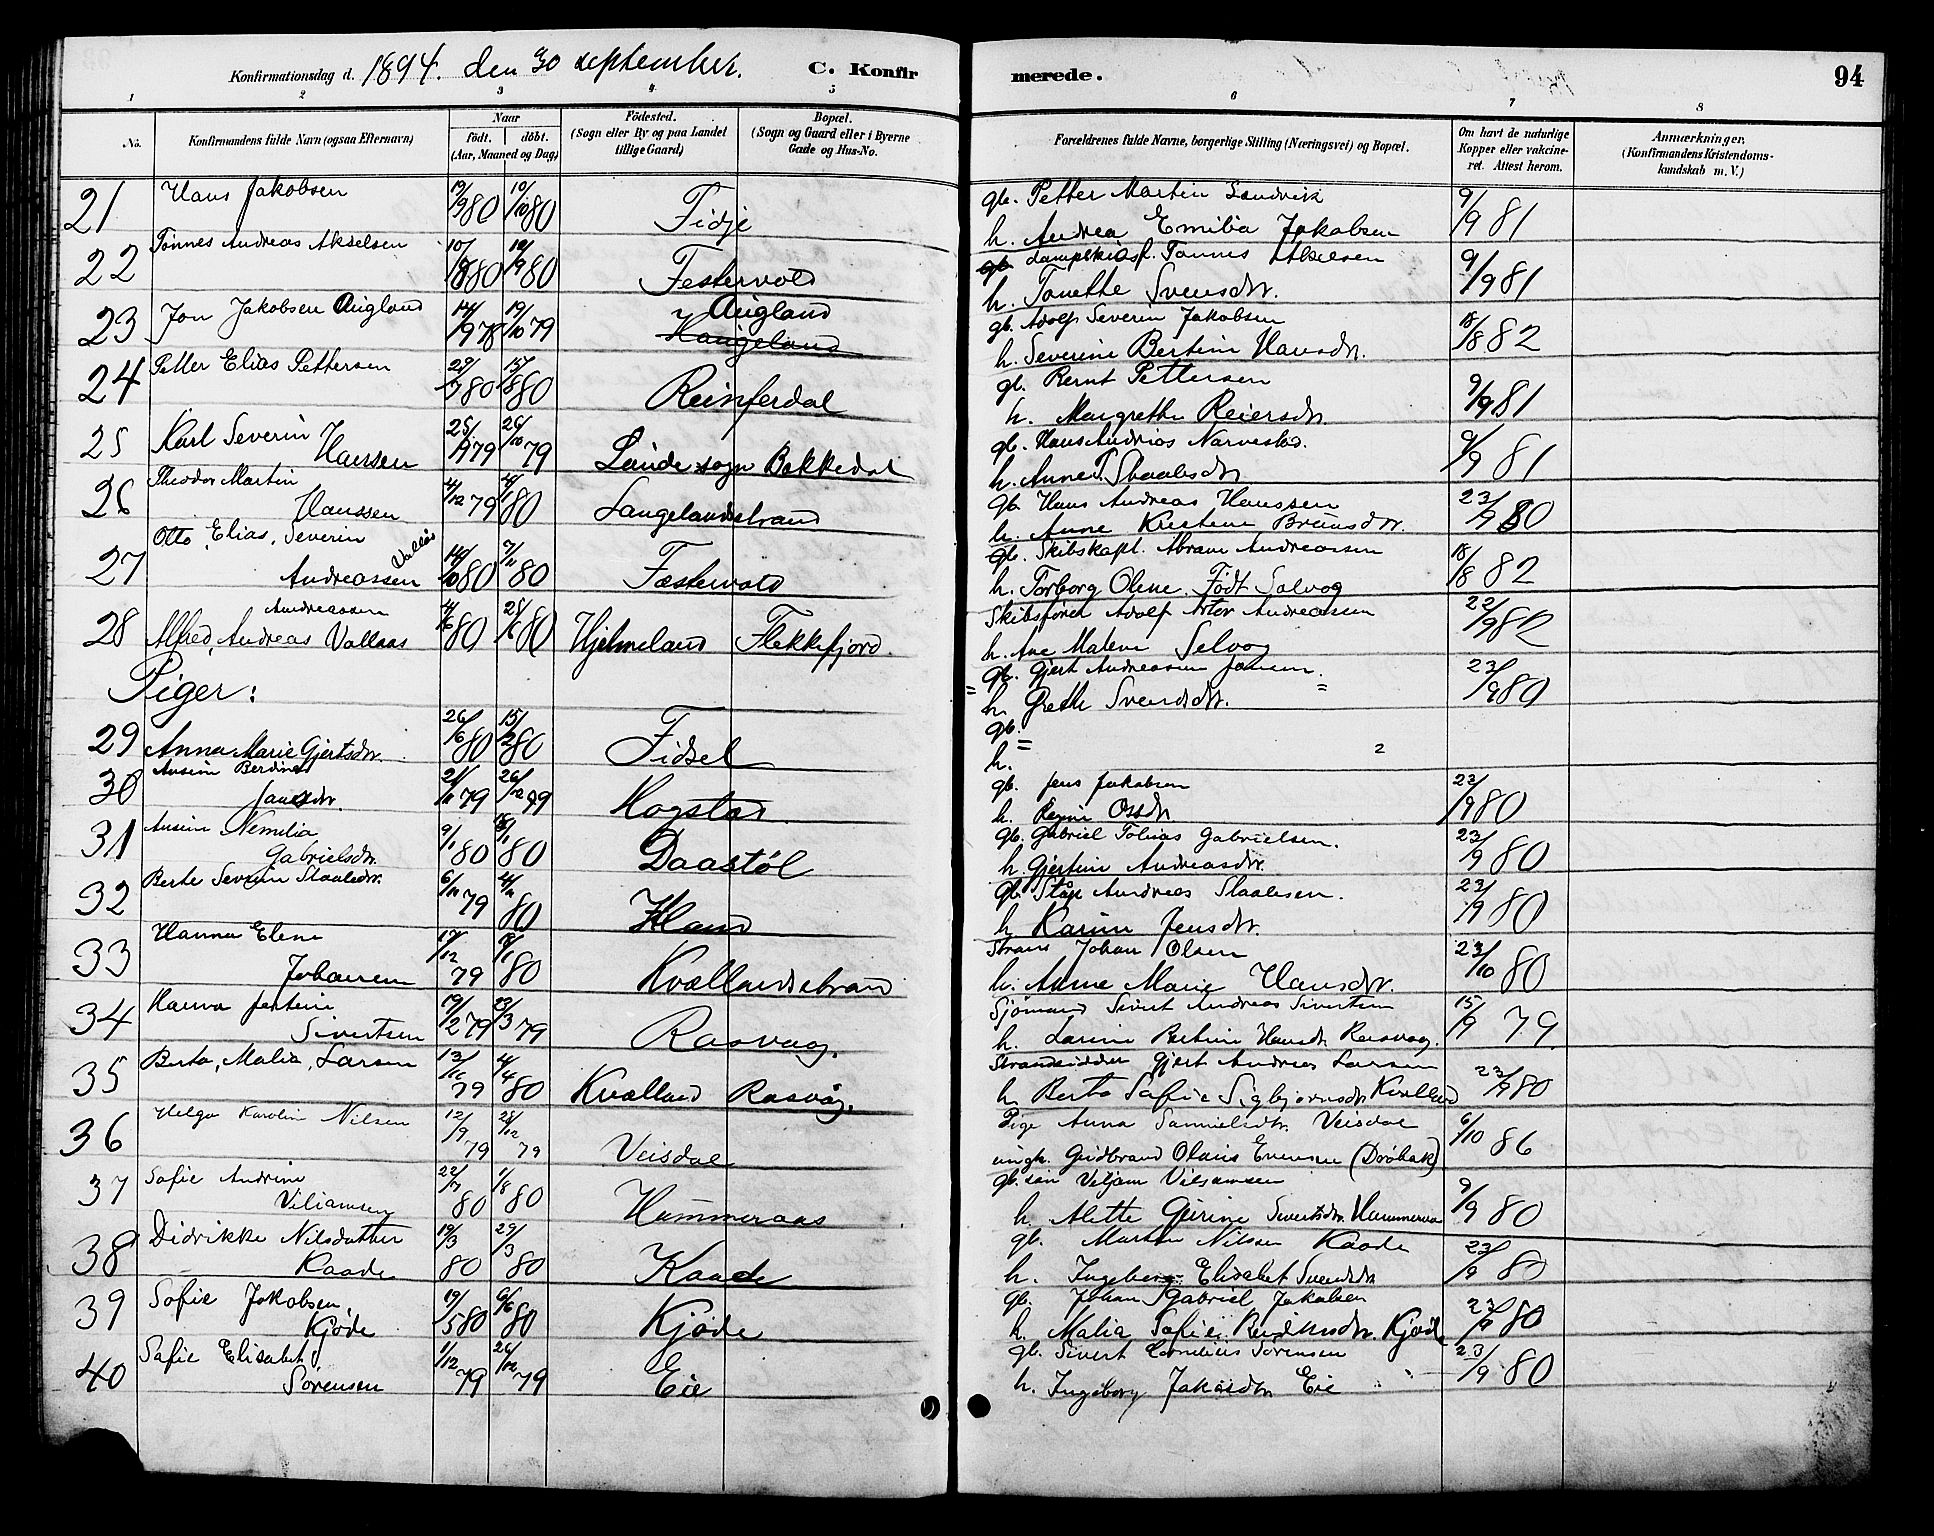 Konfirmationsdag d. 1894. den 30 september. C. Konfirmerede. 94
1 2 3 4 5 6 7 8
No. Konfirmandens fulde Navn (ogsaa Efternavn) Naar født. døbt. (Aar, Maaned og Dag) Fødested. (Sogn eller By og paa Landet tillige Gaard) Bopæl. (Sogn og Gaard eller i Byerne Gade og Hus-No. Forældrenes fulde Navne, borgerlige Stilling (Næringsvei) og Bopæl. Om havt de naturlige Kopper eller vakcineret. Attest herom. Anmærkninger. (Konfirmandens Kristendomskundskab m. V.)
21 Hans Jakobsen 19/9 80 10/10 80 Fidje gb. Petter Martin Sandvik
h. Andrea Emilia Jakobsen 9/9 81
22 Tønnes Andreas Akselsen 80 12/9 80 Festervold Tønnes Akselsen
h. Tonette Svensdtr. 9/9 81
23 Jon Jakobsen Augland 78 19/10 79 Augland Haugeland gb. Adolf Severin Jakobsen
h. Severine Bertine Hansdtr. 18/8 82
24 Petter Elias Pettersen 80 15/8 80 Reinferdal gb. Bernt Pettersen
h. Margrethe Reiersdtr 9/9 81
25 Karl Severin Hanssen 25/9 79 26/10 79 Lunde sogn Bakkedal gb. Hans Andreas Narvestad.
h. Anne T. Staalesdtr 9/9 81
26 Theodor Martin Hanssen 4/12 79 4/1 80 Langelandstrand gb. Hans Andreas Hanssen
h. Anne Kristene Brunsdtr. 23/9 80
27 Otto, Elias, Severin Andreassen Vallås 14/10 80 7/11 80 Fæstervold gb. Skibskapt. Abram Andreassen
h. Torborg Olene. Født Salvog 18/8 82
28 Alfred, Andreas Andreassen Vallaas 4/6 80 25/6 80 Hjelmeland Flekkefjord. Skibsfører Adolf Andreassen
h. Ane Malene Selvog 22/9 82
Piger: gb. Gjert Andreassen Jansen.
h. Grethe Svendsdtr. 23/9 80
29 Anna Marie Gjertsdtr. 26/6 80 15/ 80 Fidsel gb.
h.
30 Ansine Berdine Jansdtr. 21/11 79 26/12 79 Hogstad. gb. Jens Jakobsen
h. Regine Osdtr 23/9 80
31 Ansine Nemilia Gabrielsdtr. 9/1 80 80 Daastøl gb. Gabriel Tobias Gabrielsen.
h. Gjertine Andreasdtr. 23/9 80
32 Berte Severin Staalesdtr. 6/ 79 80 Haus gb. Ståle Andreas Staalesen.
h Karine Jensdtr. 23/9 80
33 Hanna Elene Johannsen 17/12 79 /1 80 Kvællandsstrand Strans Johan Olsen
h. Anne Marie Hansdtr. 23/10 80
34 Hanna Jentine Sivertsen 19/2 79 23/3 79 Rasvaag. Sjømand Sivert Andreas Sivertsen
h. Larine Bertine Hansdtr Rasvaag. 15/9 79
35 Berta, Malia, Larsen 13/ 79 4/4 80 Kvælland Rasvåg. Strandsidder Gjert Andreas Larsen
h Berta Safie Sigbjørnsdtr. Kvælland 23/9 80
36 Helga Karolin Nilsen 12/9 79 28/12 79 Veisdal Pige Anna Samuelsdtr. Veisdal
ungk. Gudbrand Olaus Evensen (Drøbak) 6/10 86
37 Safie Andrine Viliamsen 22/7 80 1/8 80 Hummeraas gb. Viljam Viljamsen
h. Alette Gurine Sivertsdtr. Hummeraas 9/9 80
38 Didrikke Nilsdatter Kaade 19/3 80 29/3 80 Kaade gb. Martin Nilsen Kaade
h. Ingeborg Elisabet Svendsdtr 23/9 80
39 Sofie Jakobsen, Kjøde 19/5 80 6/6 80 Kjøde gb. Johan Gabriel Jakobsen
h. Malia Safie Kjøde 23/9 80
40 Safie Elisabet Sørensen 1/12 79 26/12 79 Eie gb. Sivert Kornelius Sørensen
h. Ingeborg Jakobsdtr. Eie 23/9 80